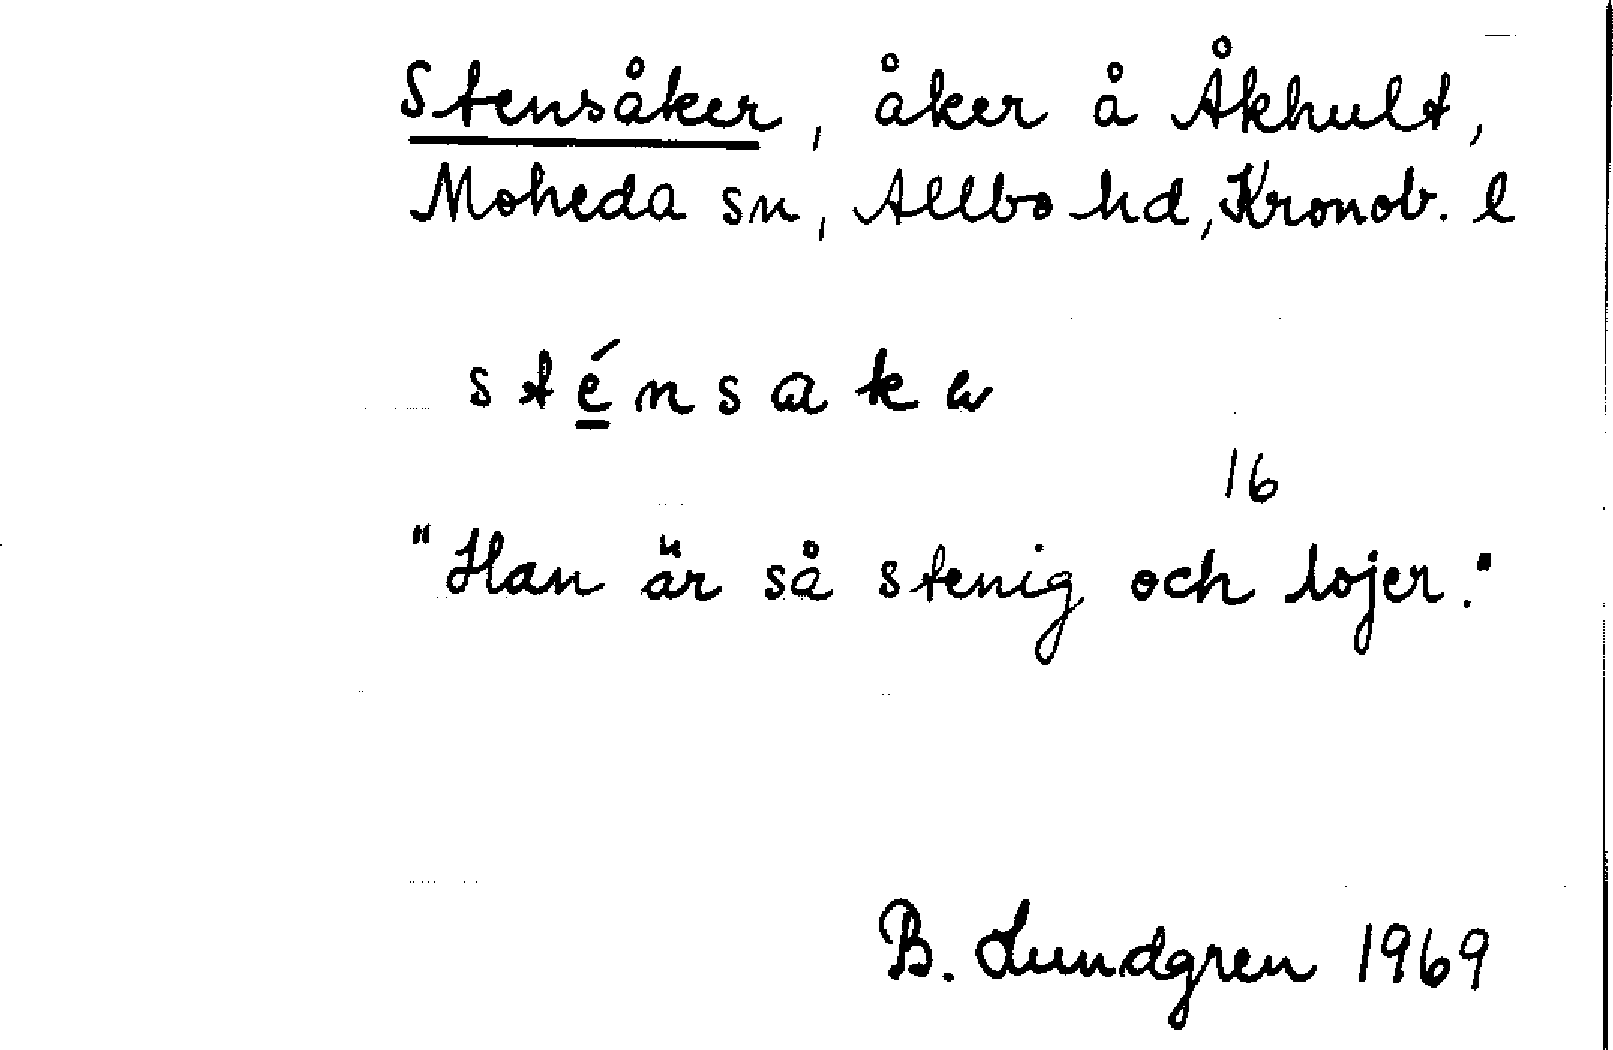 Stensåker, åker å Åkhult,
Moheda sn, Allbo hd, Kronob. l
sténsakə
16
"Han är så stenig och lojer."
B. Lundgren 1969